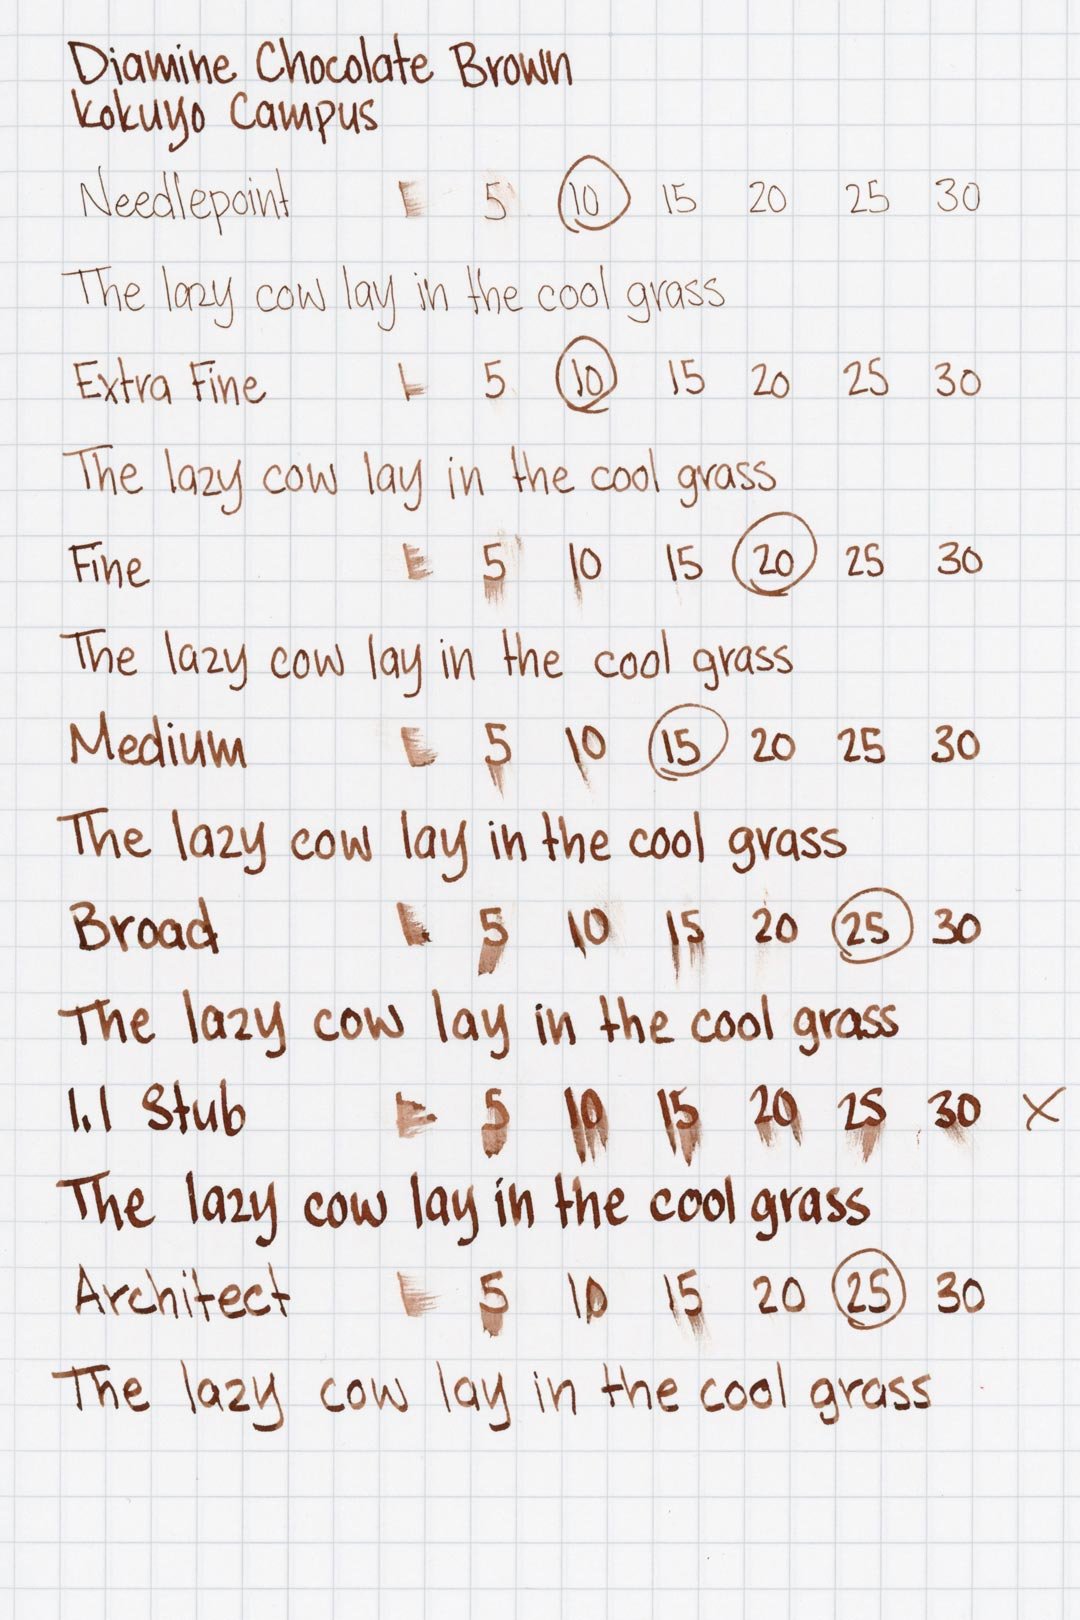 Diamine Chocolate Brown
Kokuyo Campus
Needlepoint 5 10 15 20 25 30
The lazy cow lay in the cool grass
Extra Fine 5 10 15 20 25 30
The lazy cow lay in the cool grass
Fine 5 10 15 20 25 30
The lazy cow lay in the cool grass
Medium 5 10 15 20 25 30
The lazy cow lay in the cool grass
Broad 5 10 15 20 25 30
The lazy cow lay in the cool grass
1.1 Stub 5 10 15 20 25 30 X
The lazy cow lay in the cool grass
Architect 5 10 15 20 25 30
The lazy cow lay in the cool grass